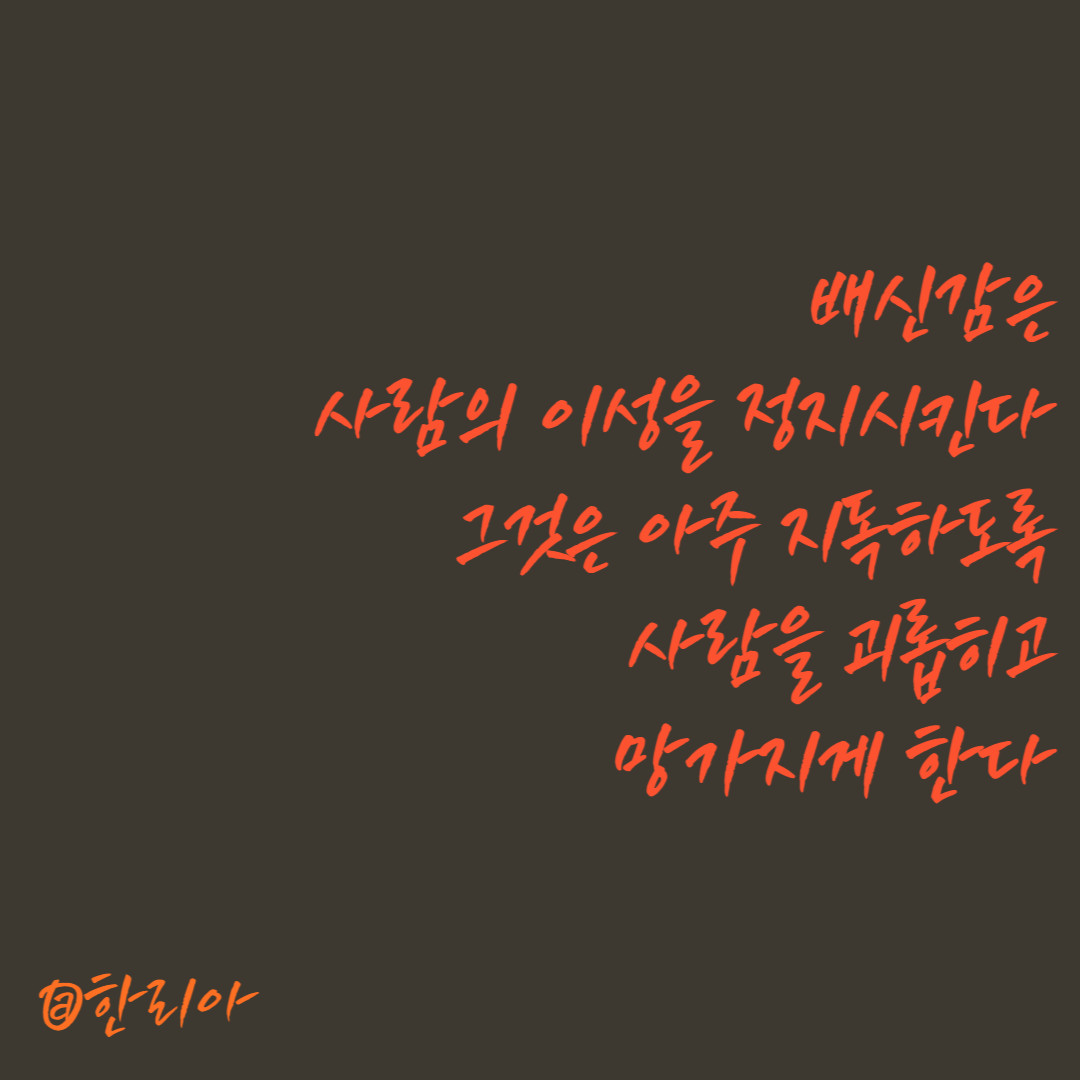 배신감은
사람의 이성을 정지시킨다
그것은 아주 지독하도록
사람을 괴롭히고
망가지게 한다
@한리아